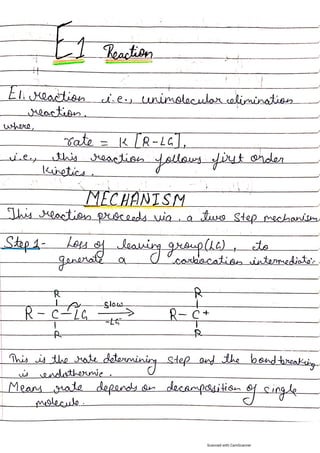 E1 Reaction
E1. reaction i.e., unimolecular elimination
reaction.
where,
rate = K [R-LG],
i.e., this reaction follows first order
kinetics.
MECHANISM
This reaction proceeds via a two step mechanism
Step 1- Loss of leaving group(LG), to
generate a carbocation intermediate.
R R
R - C - LG slow R - C+
-LG
R R
This is the rate determining step and the bond breaking
is endothermic.
Means rate depends on decomposition of single
molecule.
Scanned with CamScanner